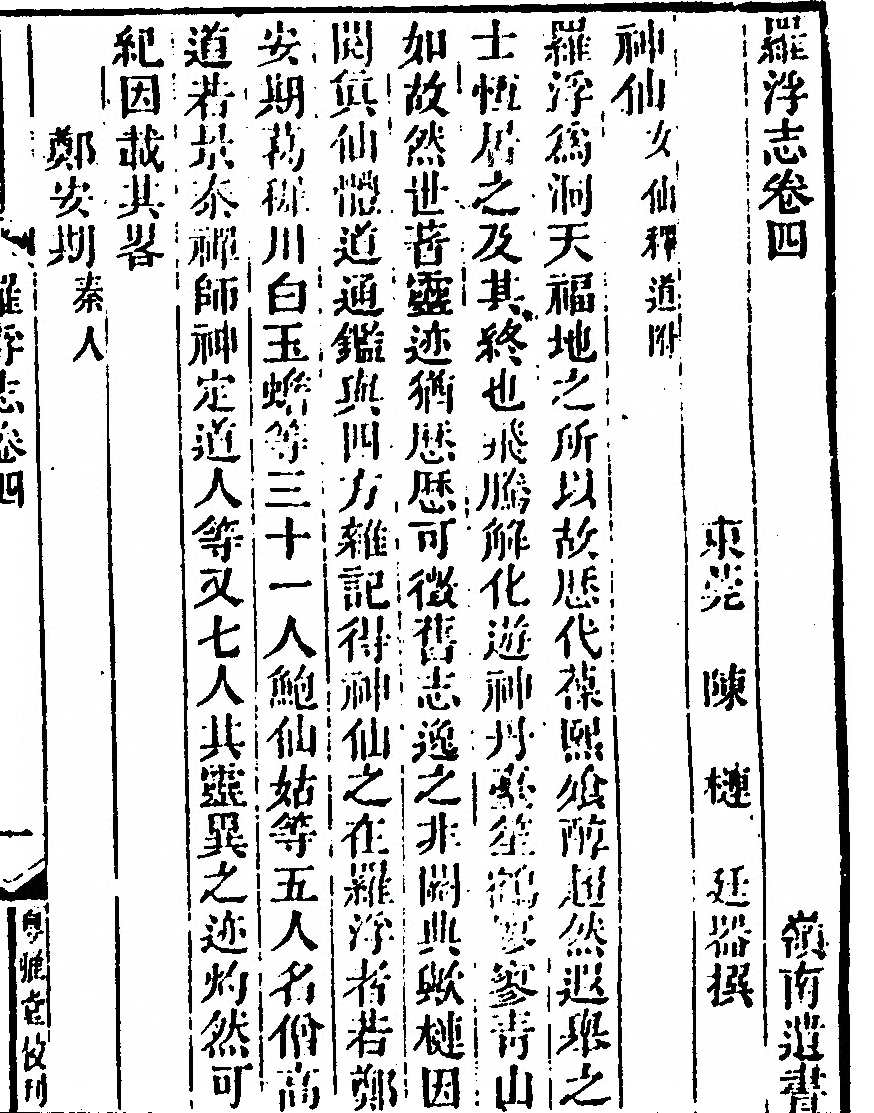 羅浮志卷四　嶺南遺書
東莞　陳　槤　廷器撰
神仙 女仙釋道附
羅浮為洞天福地之所以故歷代葆熙飧醇超然遐舉之
士恆居之及其終也飛騰解化遊神丹壑笙鶴寥寥青山
如故然世著靈迹猶歷歷可徵舊志逸之非闕典歟槤因
閱真仙體道通鑑與四方雜記得神仙之在羅浮者若鄭
安期葛稚川白玉蟾等三十一人鮑仙姑等五人名僧高
道若景泰禪師神定道人等又七人其靈異之迹灼然可
紀因載其畧
鄭安期 秦人
羅浮志卷四　一　粤雅堂校刊